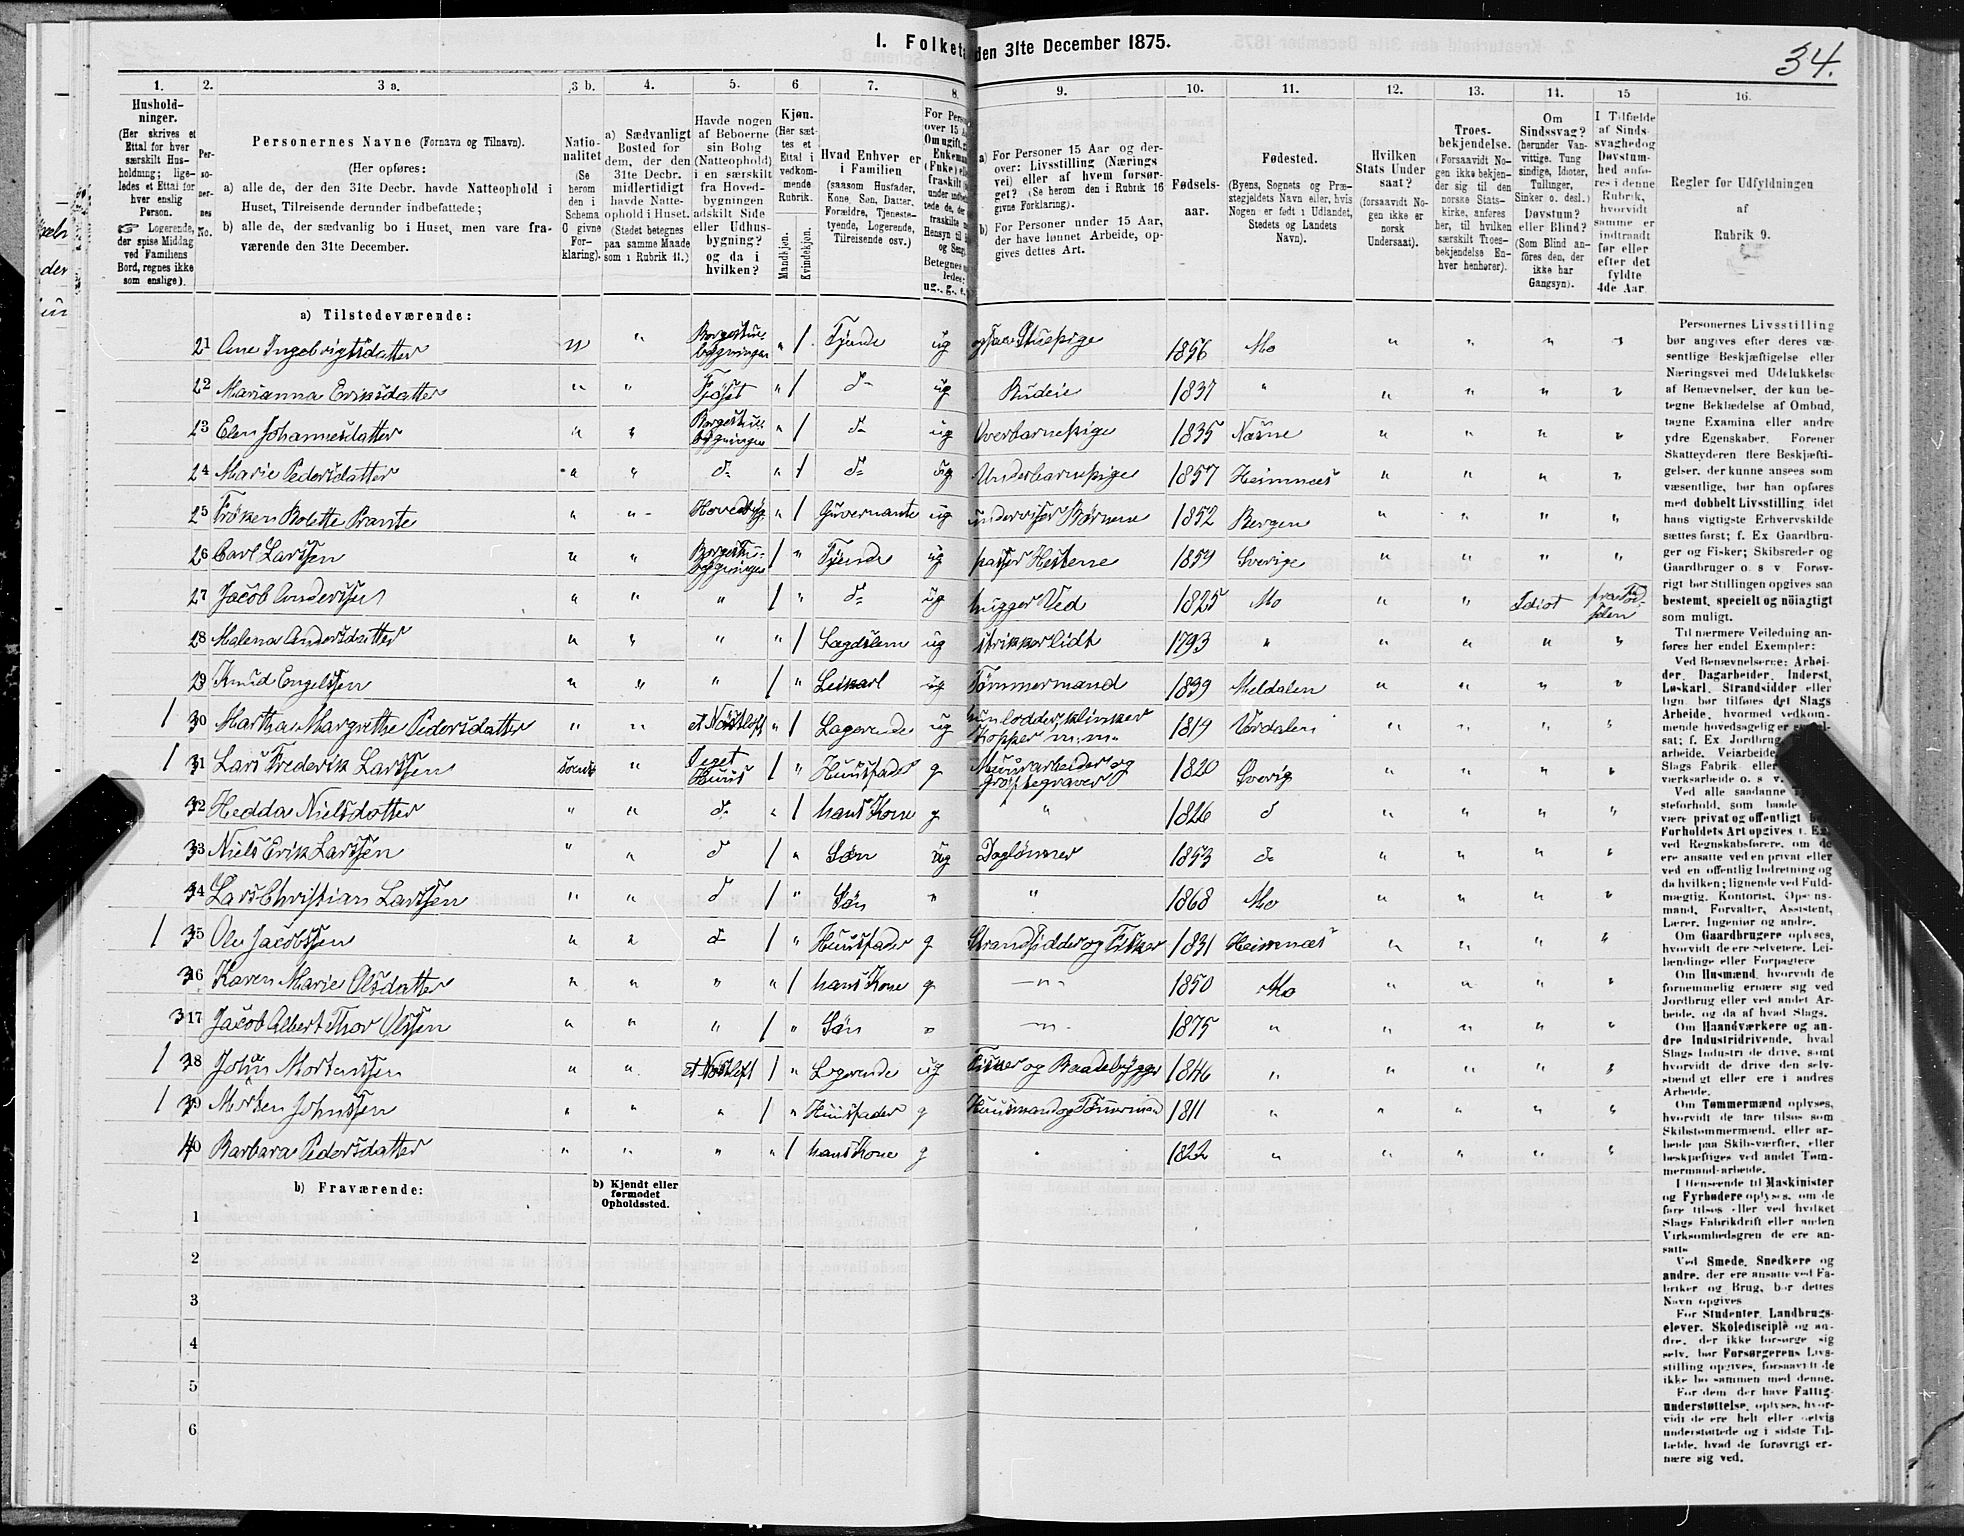 1. Folket den 31te December 1875.
34.
1. 2. 3 a. 3 b. 4. 5. 6 7. 8. 9. 10. 11. 12. 13. 14. 15 16.
Hushold-
ninger.
(Her skrives et
Ettal for hver
særskilt Hus-
holdning; lige-
ledes et Ettal for
hver enslig
Person.
☞ Logerende,
der spise Middag
ved Familiens
Bord, regnes ikke
som enslige).
Per-
so-
ner-
nes
No.
Personernes Navne (Fornavn og Tilnavn).
(Her opføres:
a) alle de, der den 31te Decbr. havde Natteophold i
Huset, Tilreisende derunder indbefattede;
b) alle de, der sædvanlig bo i Huset, men vare fra-
værende den 31te December.
Natio-
nalitet
(Se
herom
den i
Schema
6 givne
For-
klaring).
a) Sædvanligt
Bosted for
dem, der den
31te Decbr.
midlertidigt
havde Natte-
ophold i Huset.
(Stedet betegnes
paa samme Maade
som i Rubrik 11.)
Havde nogen
af Beboerne
sin Bolig
(Natteophold)
i en særskilt
fra Hoved-
bygningen
adskilt Side
eller Udhus-
bygning?
og da i
hvilken?
Kjøn.
(Her sæt-
tes et
Ettal i
vedkom-
mende
Rubrik.
Mandkjøn.
Kvindekjøn.
Hvad Enhver er
i Familien
(saasom Husfader,
Kone, Søn, Datter,
Forældre, Tjeneste-
tyende, Logerende,
Tilreisende osv.)
For Perso
over 15 A
Om ugift, g
Enkeman
(Fnke) elle
fraskilt
ug., g., e.
a) For Personer 15 Aar og der-
over: Livsstilling (Nærings
vei) eller af hvem forsør-
get? (Se herom den i Rubrik 16
givne Forklaring).
b) For Personer under 15 Aar,
der have lønnet Arbeide, op-
gives dettes Art.
Fødsels-
aar.
Fødested.
(Byens, Sognets og Præ-
stegjeldets Navn eller, hvis
Nogen er født i Udlandet,
Stedets og Landets
Navn).
Hvilken
Stats Under
saat?
(forsaavidt No-
gen ikke er
norsk
Undersaat).
Troes-
bekjendelse.
(Forsaavidt No-
gen ikke bekjen-
der sig til den
norske Stats-
kirke, anføres
her, til hvilken
særskilt Troes-
bekjendelse En-
hver henhører).
Om
Sindssvag?
(herunder Van-
vittige, Tung
sindige, Idioter,
Tullinger,
Sinker o. desl.)
Døvstum?
eller Blind?
(Som Blind an-
føres den, der
ikke har
Gangsyn).
I Tilfælde
af Sinds-
svaghed og
Døvstum-
hed anfø-
res i denne
Rubrik,
hvorvidt
samme er
indtraadt
før eller
efter det
fyldte
4de Aar.
Regler for Udfyldningen
af
Rubrik 9.
a) Tilstedeværende:
21 Ane Ingebrigtsdatter n " Borgestue-bygningen " 1 Tjende ug opfaa Stuepige 1856 Mo " " " "
22 Marianna Eriksdatter " " Fjøset " 1 d- ug Budeie 1837 " " " " "
23 Elen Johannesdatter " " Borgestue-bygningen " 1 d- ug Overbarnepige 1835 Næsne " " " "
24 Marie Pedersdatter " " d- " 1 d- ug Underbarnepige 1857 Hemnæs " " " "
25 Frøken Bolette Prante " " Hovedbyg. " 1 Guvernante ug underviser Børnene 1852 Bergen " " " "
26 Carl Larssen " " Borgestue-bygningen 1 " Tjende ug passer Hestene 1859 Sverige " " " "
27 Jacob Anderssen " " " 1 " d- ug hugger Ved 1825 Mo " " Idiot fra Fødselen
28 Malena Andersdatter " " " " 1 Lægdslem ug strikker lidt 1793 " " " " "
29 Knud Engelssen " " " 1 " Leikarl ug Tømmermand 1839 Meldalen " " " "
1 30 Martha Margrethe Pedersdatter " " et Nøstloft " 1 Logerende ug hun lodder, klinker Kopper m.m. 1819 Værdalen " " " "
1 31 Lars Frederik Larssen svensk " Teget Huus 1 " Huusfader g Muurarbeider og grøftegraver 1820 Sverig " " " "
32 Hedda Nielsdatter " " d- " 1 hans Kone g " 1826 d " " " "
33 Niels Erik Larssen " " d 1 " Søn ug Daglønner 1853 d- " " " "
34 Lars Christian Larssen " " d 1 " Søn " " 1868 Mo " " " "
1 35 Ole Jacobssen " " d- 1 " Huusfader g Strandsidder og Fisker 1831 Hemnæs " " " "
36 Karen Marie Olsdatter " " " " 1 hans Kone g —"- 1850 Mo " " " "
37 Jacob Albert Thor Olssen " " " 1 " Søn " —"- 1875 " " " " "
1 38 John Mortenssen " " et Nøstloft 1 " Logerende ug Fisker og Baadebygger 1846 " " " " "
1 39 Morten Johnssen " " " 1 " Huusfader g Huusmand og Tømmermand 1811 " " " " "
40 Barbara Pedersdatter " " " " 1 hans Kone g " 1822 " " " " "
b) Fraværende:
b) Kjendt eller
formodet
Opholdssted.
1
2
3
4
5
6
Personernes Livsstilling
bør angives efter deres væ-
sentlige Beskjæftigelse eller
Næringsvei med Udelukkelse
af Benævnelser, der kun be-
tegne Beklædelse af Ombud,
tagne Examina eller andre
ydre Egenskaber. Forener
Skatteyderen flere Beskjæfti-
gelser, der kunne ansees som
væsentlige, bør han opføres
med dobbelt Livsstilling, idet
hans vigtigste Erhvervskilde
sættes først; f. Ex Gaardbru-
ger og Fisker; Skibsreder og
Gaardbruger o. s v Forøv-
rigt bør Stillingen opgives saa
bestemt, specielt og nöiagtigt
som muligt.
Til nærmere Veiledning an-
føres her endel Exempler:
Ved Benævnelserne: Arbei-
der, Dagarbeider, Inderst,
Løskarl, Strandsidder eller
lign. bør tilføies det Slags
Arbeide, hvormed vedkom-
mende hovedsagelig er
sat; f. Ex Jordbrug
arbeide, Veiarbeide,
Slags Fabrik eller
værksarbeide o. s v.
Ved alle saadanne
steforhold, som baade
være privat og offentligt bør
Forholdets Art opgives f. Ex
ved Regnskabsførere, om de
ere ansatte ved en privat eller
ved en offentlig Indretning og
da hvilken; lignende ved Fuld-
mægtig, Kontorist, Opsyns-
mand, Forvalter, Assistent,
Lærer, Ingeniør og andre.
Om Gaardbrugere oplyses,
hvorvidt de ere Selveiere, Lei-
lændinge eller Forpagtere
Om Husmænd, hvorvidt de
fornemmelig ernære sig ved
Jordbrug eller ved andet Ar-
beide, og da af hvad Slags.
Om Haandværkere og an-
dre Industridrivende, hvad
Slags Industri de drive, samt
hvorvidt de drive den selv-
stændigt eller ere i andres
Arbeide.
Om Tømmermænd oplyses,
hvorvidt de fare tilsøs som
Skibstømmermænd, eller ar-
beide paa Skibsværfter, eller
beskjæftiges ved andet Tøm-
mermandsarbeide.
I Henseende til Maskinister
og Fyrbødere oplyses, om de
fare tilsøs eller ved hvilket
Slags Fabrikdrift eller anden
Virksomhedsgren de ere an-
satte
Ved Smede, Snedkere og
andre, der ere ansatte ved Fa-
briker og Brug, bør dettes
Navn opgives
For Studenter, Landbrugs-
elever, Skoledisciple og an-
dre, der ikke forsørge sig
selv, bør Forsørgerens Livs-
stilling opgives, forsaavidt de
ikke bo sammen med denne.
For dem, der have Fattig-
understøttelse, oplyses, hvor-
vidt de ere helt eller delvis
understøttede og i sidste Til-
fælde, hvad de forøvrigt er-
nære sig ved.